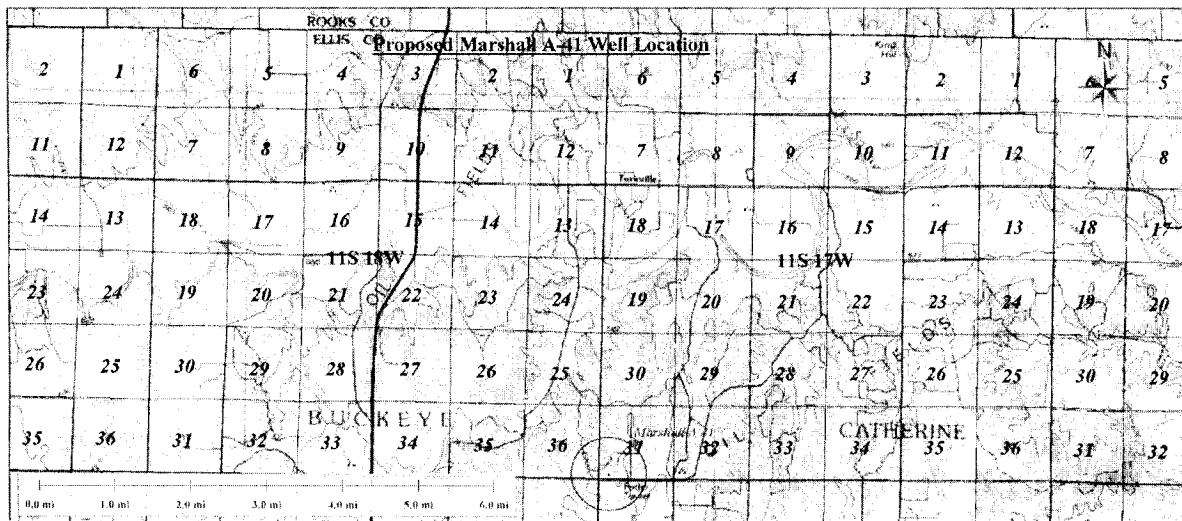 ROOKS CO
ELLIS CO
Proposed Marshall A-41 Well Location
N
2 1 6 5 4 3 2 1 6 5 4 3 2 1 6 5
11 12 7 8 9 10 11 12 7 8 9 10 11 12 7 8
FIELD
Turkville
14 13 18 17 16 15 14 13 18 17 16 15 14 13 18 17
11S 18W 11S 17W
23 24 19 20 21 22 23 24 19 20 21 22 23 24 19 20
OIL
26 25 30 29 28 27 26 25 30 29 28 27 26 25 30 29
BUCKEYE CATHERINE
35 36 31 32 33 34 35 36 31 32 33 34 35 36 31 32
0.0 mi 1.0 mi 2.0 mi 3.0 mi 4.0 mi 5.0 mi 6.0 mi